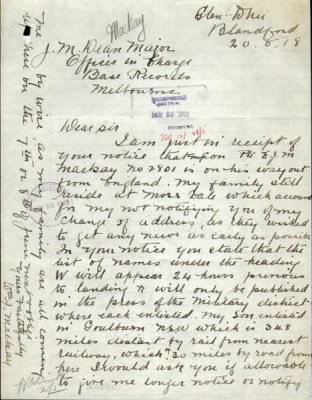 Mackay
Glen-
Blandford
20.5.18
J. M. Dean Major
Officer in Charge
Base Records
Melbourne
MAY 25 1918
Dear sir
I am just in receipt
of your notice that my
Mackay no 2801 is on his way out
from England. my family still
reside at Moss Vale which accounts
for my not notifying you of my
change of address, as they wished
to get any news as early as possible
In your notice you state that the
list of names under the heading
W will appear 24 hours previous
to landing & will only be published
in the press of the Military district
where each enlisted. My son enlisted
in Goulburn N.S.W which is 248
miles distant by rail from nearest
railway, which 20 miles by road from
here I would ask you if allowable
to give me longer notice or notify
me by wire as my family are all coming
up here on the 7th or 8th of June
yours faithfully
Wm J. Mackay